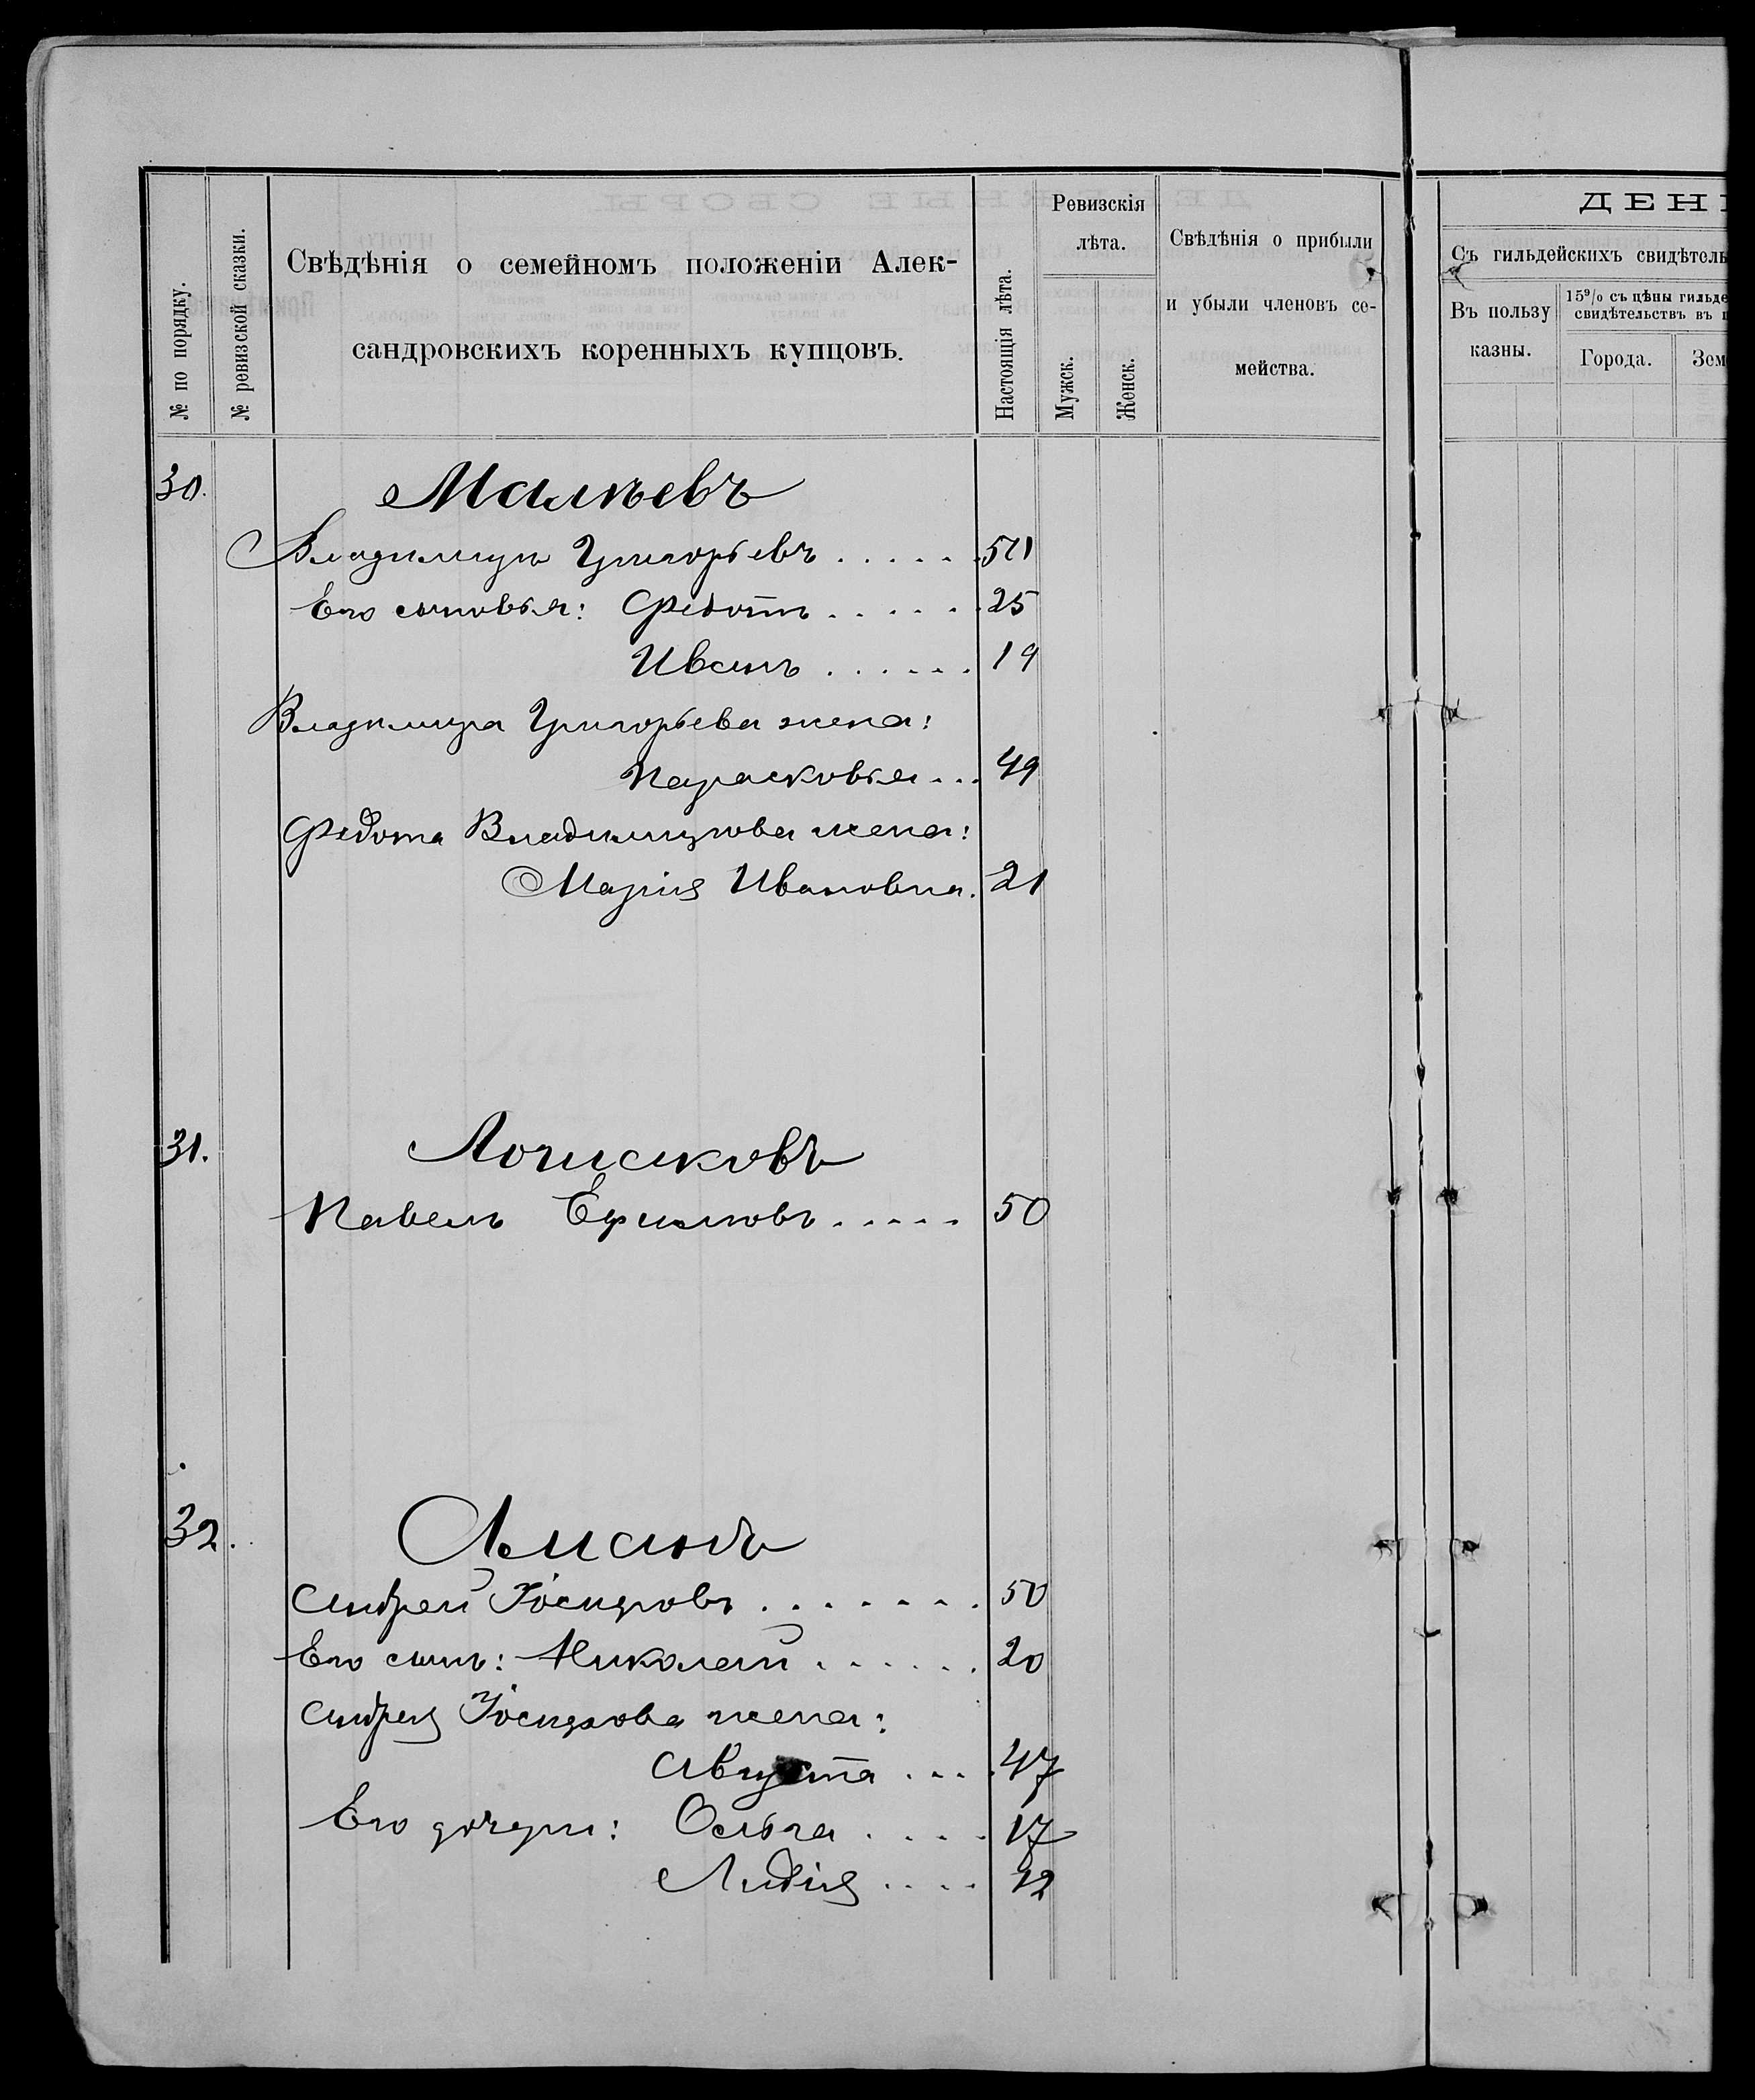 № по порядку.
№ ревизской сказки.
Свѣдѣнія о семейномъ положеніи Алек-
сандровскихъ коренныхъ купцовъ.
Настоящія лѣта.
Ревизскія
лѣта.
Мужск.
Женск.
Свѣдѣнія о прибыли
и убыли членовъ се-
мейства.
ДЕН
Съ гильдейскихъ свидѣтель
Въ пользу
казны.
15% съ цѣны гильде
свидѣтельствъ въ п
Города.
Зем
30. Малѣевъ
Владимиръ Григорьевъ . . . . . 50
Его сыновья: Федотъ . . . . . 25
Иванъ . . . . . . 19
Владимира Григорьева жена:
Парасковья . . . 49
Федота Владимирова жена:
Марія Ивановна. 21
31.
Павелъ Ефимовъ . . . . . 50
32.
Андрей Іосифовъ . . . . . . . 50
Его сынъ: Николай . . . . . . 20
Андрея Іосифова жена:
Августа . . . . 47
Его дочери: Ольга . . . . . 17
Лидія . . . . 12